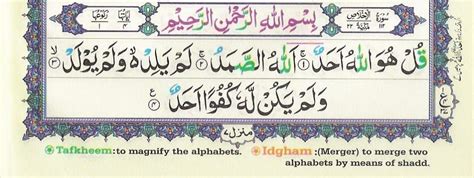 بِسْمِ اللهِ الرَّحْمٰنِ الرَّحِيْمِ
قُلْ هُوَ اللهُ اَحَدٌ ۝١ اَللهُ الصَّمَدُ ۝٢ لَمْ يَلِدْ ۙ۬ وَلَمْ يُوْلَدْ ۝٣
وَلَمْ يَكُنْ لَّهٗ كُفُوًا اَحَدٌ ۝٤
منزل ٧
Tafkheem:to magnify the alphabets.
Idgham:(Merger) to merge two
alphabets by means of shadd.